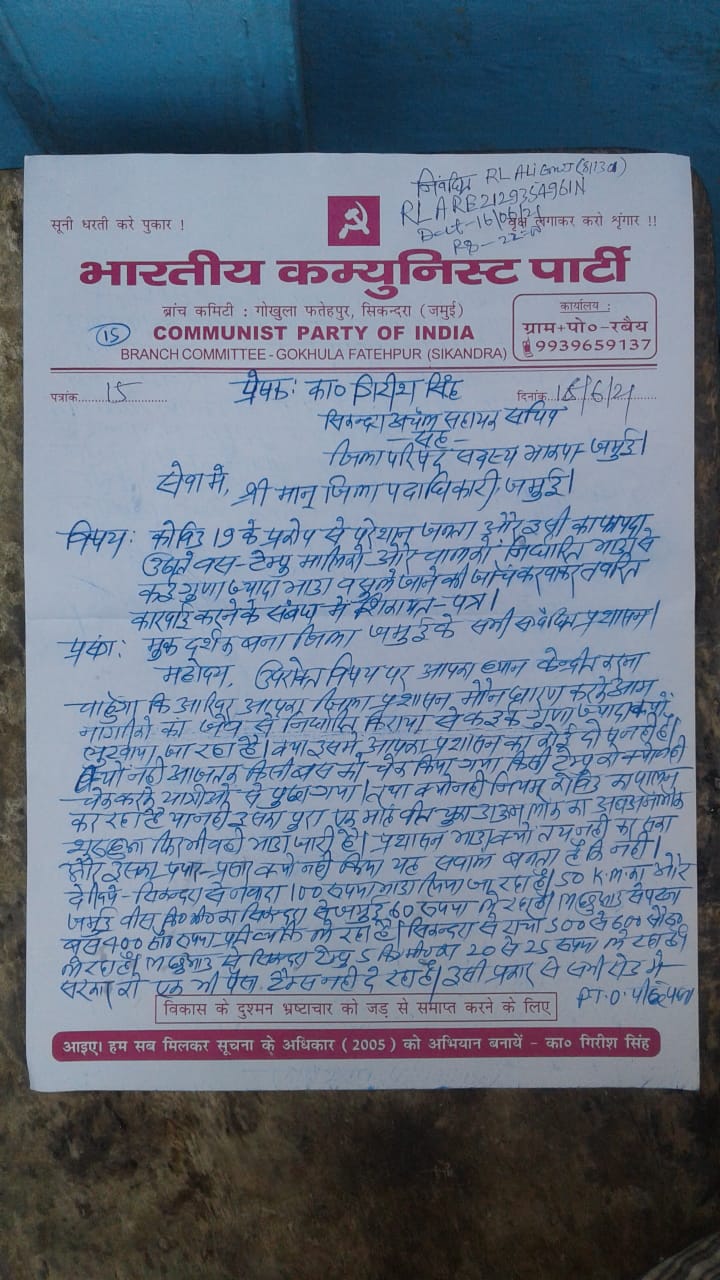 निबंधित RL Aliganj (811301)
RLARE212935496IN
Date-16/06/21
Rs-22=00
सूनी धरती करे पुकार !
वृक्ष लगाकर करो श्रृंगार !!
भारतीय कम्युनिस्ट पार्टी
ब्रांच कमिटी : गोखुला फतेहपुर, सिकन्दरा (जमुई)
कार्यालय :
ग्राम+पो०-रबैय
9939659137
15
COMMUNIST PARTY OF INDIA
BRANCH COMMITTEE - GOKHULA FATEHPUR (SIKANDRA)
पत्रांक 15
प्रेषक: का० गिरीश सिंह
दिनांक /6/21
सिकन्दरा अंचल सहायक सचिव
-सह-
जिला परिषद सदस्य भाकपा-जमुई।
सेवा मे,
श्री मान् जिला पदाधिकारी, जमुई।
विषय: कोविड 19 के प्रकोप से परेशान जनता और इसी का फायदा
उठाते बस-टेम्पु मालिको और चालकों निर्धारित भाड़ा से
कई गुणा ज्यादा भाड़ा वसुले जाने की जाँच करवाकर त्वरित
कारवाई करने के संबंध में शिकायत-पत्र।
प्रसंग: मुक दर्शक बना जिला जमुई के सभी संबंधित प्रशासन।
महोदय, उपरोक्त विषय पर आपका ध्यान केन्द्रीत करना
चाहुंगा कि आखिर आपका जिला प्रशासन मौन धारण करके आम
नागरिको का जेब से निर्धारित किराया से कई गुणा ज्यादा क्यों
लुटवाया जा रहा है। क्या इसमें आपका प्रशासन का कोई दोष नही है।
क्यों नही आजतक किसी बस को चेक किया गया किसी टेम्पु को क्यों नही
चेक करके यात्रीओ से पुछा गया। तथा क्यो नही नियम कोविड का पालन
कर रहा है या नही इसका पुरा एक माह बीत चुका डाउन लॉक का अब अनलॉक
शुरु हुआ फिर भी वही भाड़ा जारी है। प्रशासन भाड़ा क्यों तय नही कर सका
और उसका प्रचार-प्रसार क्यो नही किया यह सवाल बनता है कि नही।
देखिये- सिकन्दरा से नवादा 100 रुपया भाड़ा लिया जा रहा है। 50 K.M का और
जमुई बीस कि०मी० का सिकन्दरा से जमुई 60 रुपया ले रहा है। से पटना
बस 400 रुपया प्रति व्यक्ति ले रहा है। सिकन्दरा से रांची 500 से 600 सौ रु०
ले रहा है। से सिकन्दरा टेम्पु 5 कि०मी० का 20 से 25 रुपया ले रहा है।
सरकार को एक भी पैसा टैक्स नही दे रहा है। इसी प्रकार से सभी रोड मे
P.T.O.
विकास के दुश्मन भ्रष्टाचार को जड़ से समाप्त करने के लिए
आइए। हम सब मिलकर सूचना के अधिकार ( 2005 ) को अभियान बनायें - का० गिरीश सिंह